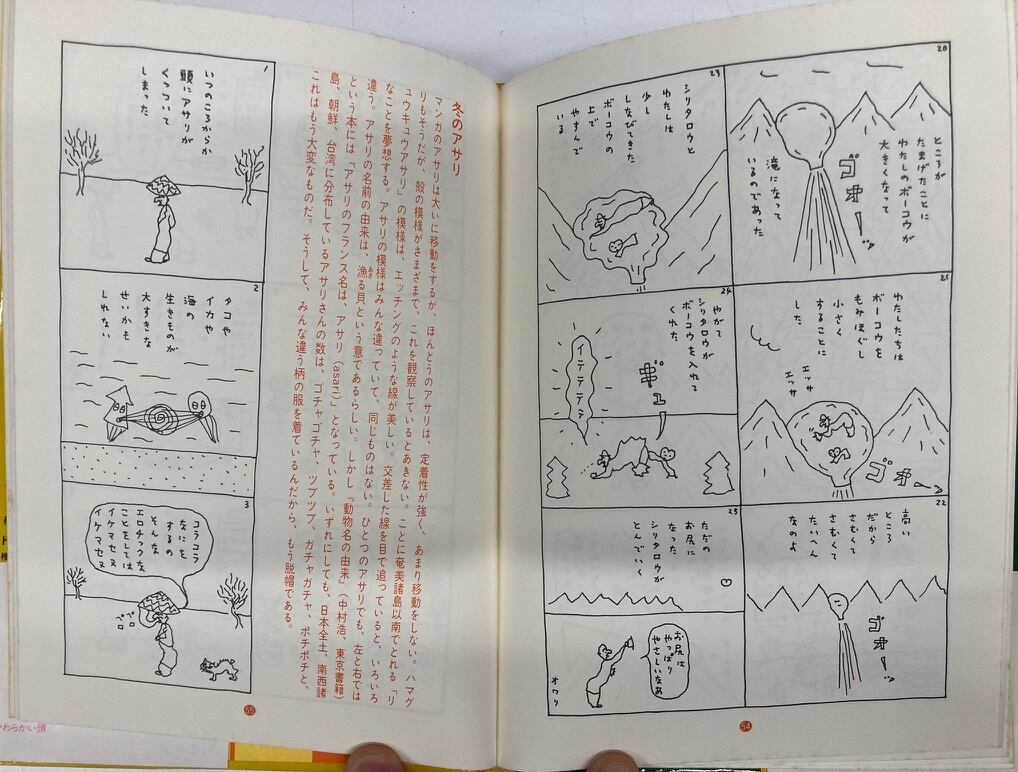 20
ところが
たまげたことに
わたしのボーコウが
大きくなって
滝になって
いるのであった
ゴオーッ
21
わたしたちは
ボーコウを
もみほぐし
小さく
することに
した
エッサ
エッサ
ゴオーッ
22
高い
ところ
だから
さむくて
さむくて
たいへん
なのよ
ゴオーッ
23
シリタロウと
わたしは
少し
しなびてきた
ボーコウの
上で
やすんで
いる
24
やがて
シリタロウが
ボーコウを入れて
くれた
ギュー
イテテテテ
25
ただの
お尻に
なった
シリタロウが
とんでいく
お尻は
やっぱり
やさしいなあ
オワリ
64
冬のアサリ
マンガのアサリは大いに移動をするが、ほんとうのアサリは、定着性が強く、あまり移動をしない。ハマグ
リもそうだが、殻の模様がさまざまで、これを観察しているとあきない。ことに奄美諸島以南でとれる「リ
ュウキュウアサリ」の模様は、エッチングのような線が美しい。交差した線を目で追っていると、いろいろ
なことを夢想する。アサリの模様はみんな違っていて、同じものはない。ひとつのアサリでも、左と右では
違う。アサリの名前の由来は、漁る貝という意であるらしい。しかし『動物名の由来』(中村浩、東京書籍)
という本には「アサリのフランス名は、アサリ(asari)」となっている。いずれにしても、日本全土、南西諸
島、朝鮮、台湾に分布しているアサリさんの数は、ゴチャゴチャ、ツブツブ、ガチャガチャ、ポチポチと、
これはもう大変なものだ。そうして、みんな違う柄の服を着ているんだから、もう脱帽である。
1
いつのころからか
頭にアサリが
くっついて
しまった
2
タコや
イカや
海の
生きものが
大すきな
せいかも
しれない
3
コラコラ
なにを
するの
そんな
エロチックな
ことをしては
イケマセヌ
イケマセヌ
ペロ
ペロ
65
やわらかい頭